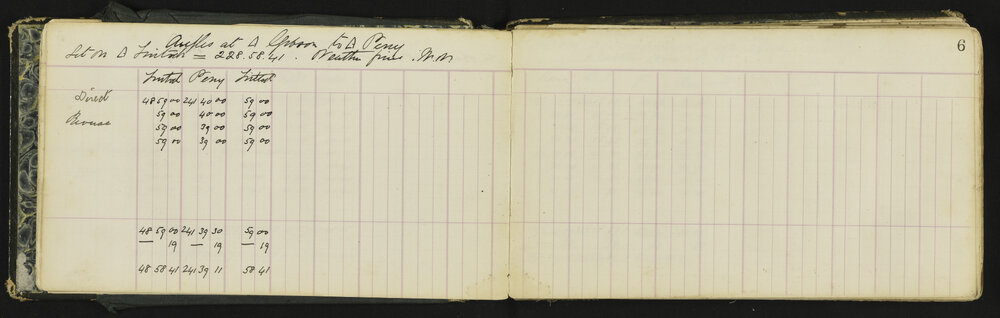 6
Angles at Δ Gibson to Δ Perry
Set on Δ = 228.58.41. Weather fine. M.M
Perry
Direct 48 59 00 241 40 00 59 00
Reverse 59 00 40 00 59 00
59 00 39 00 59 00
59 00 39 00 59 00
48 59 00 241 39 30 59 00
— 19 — 19 — 19
48 58 41 241 39 11 58 41